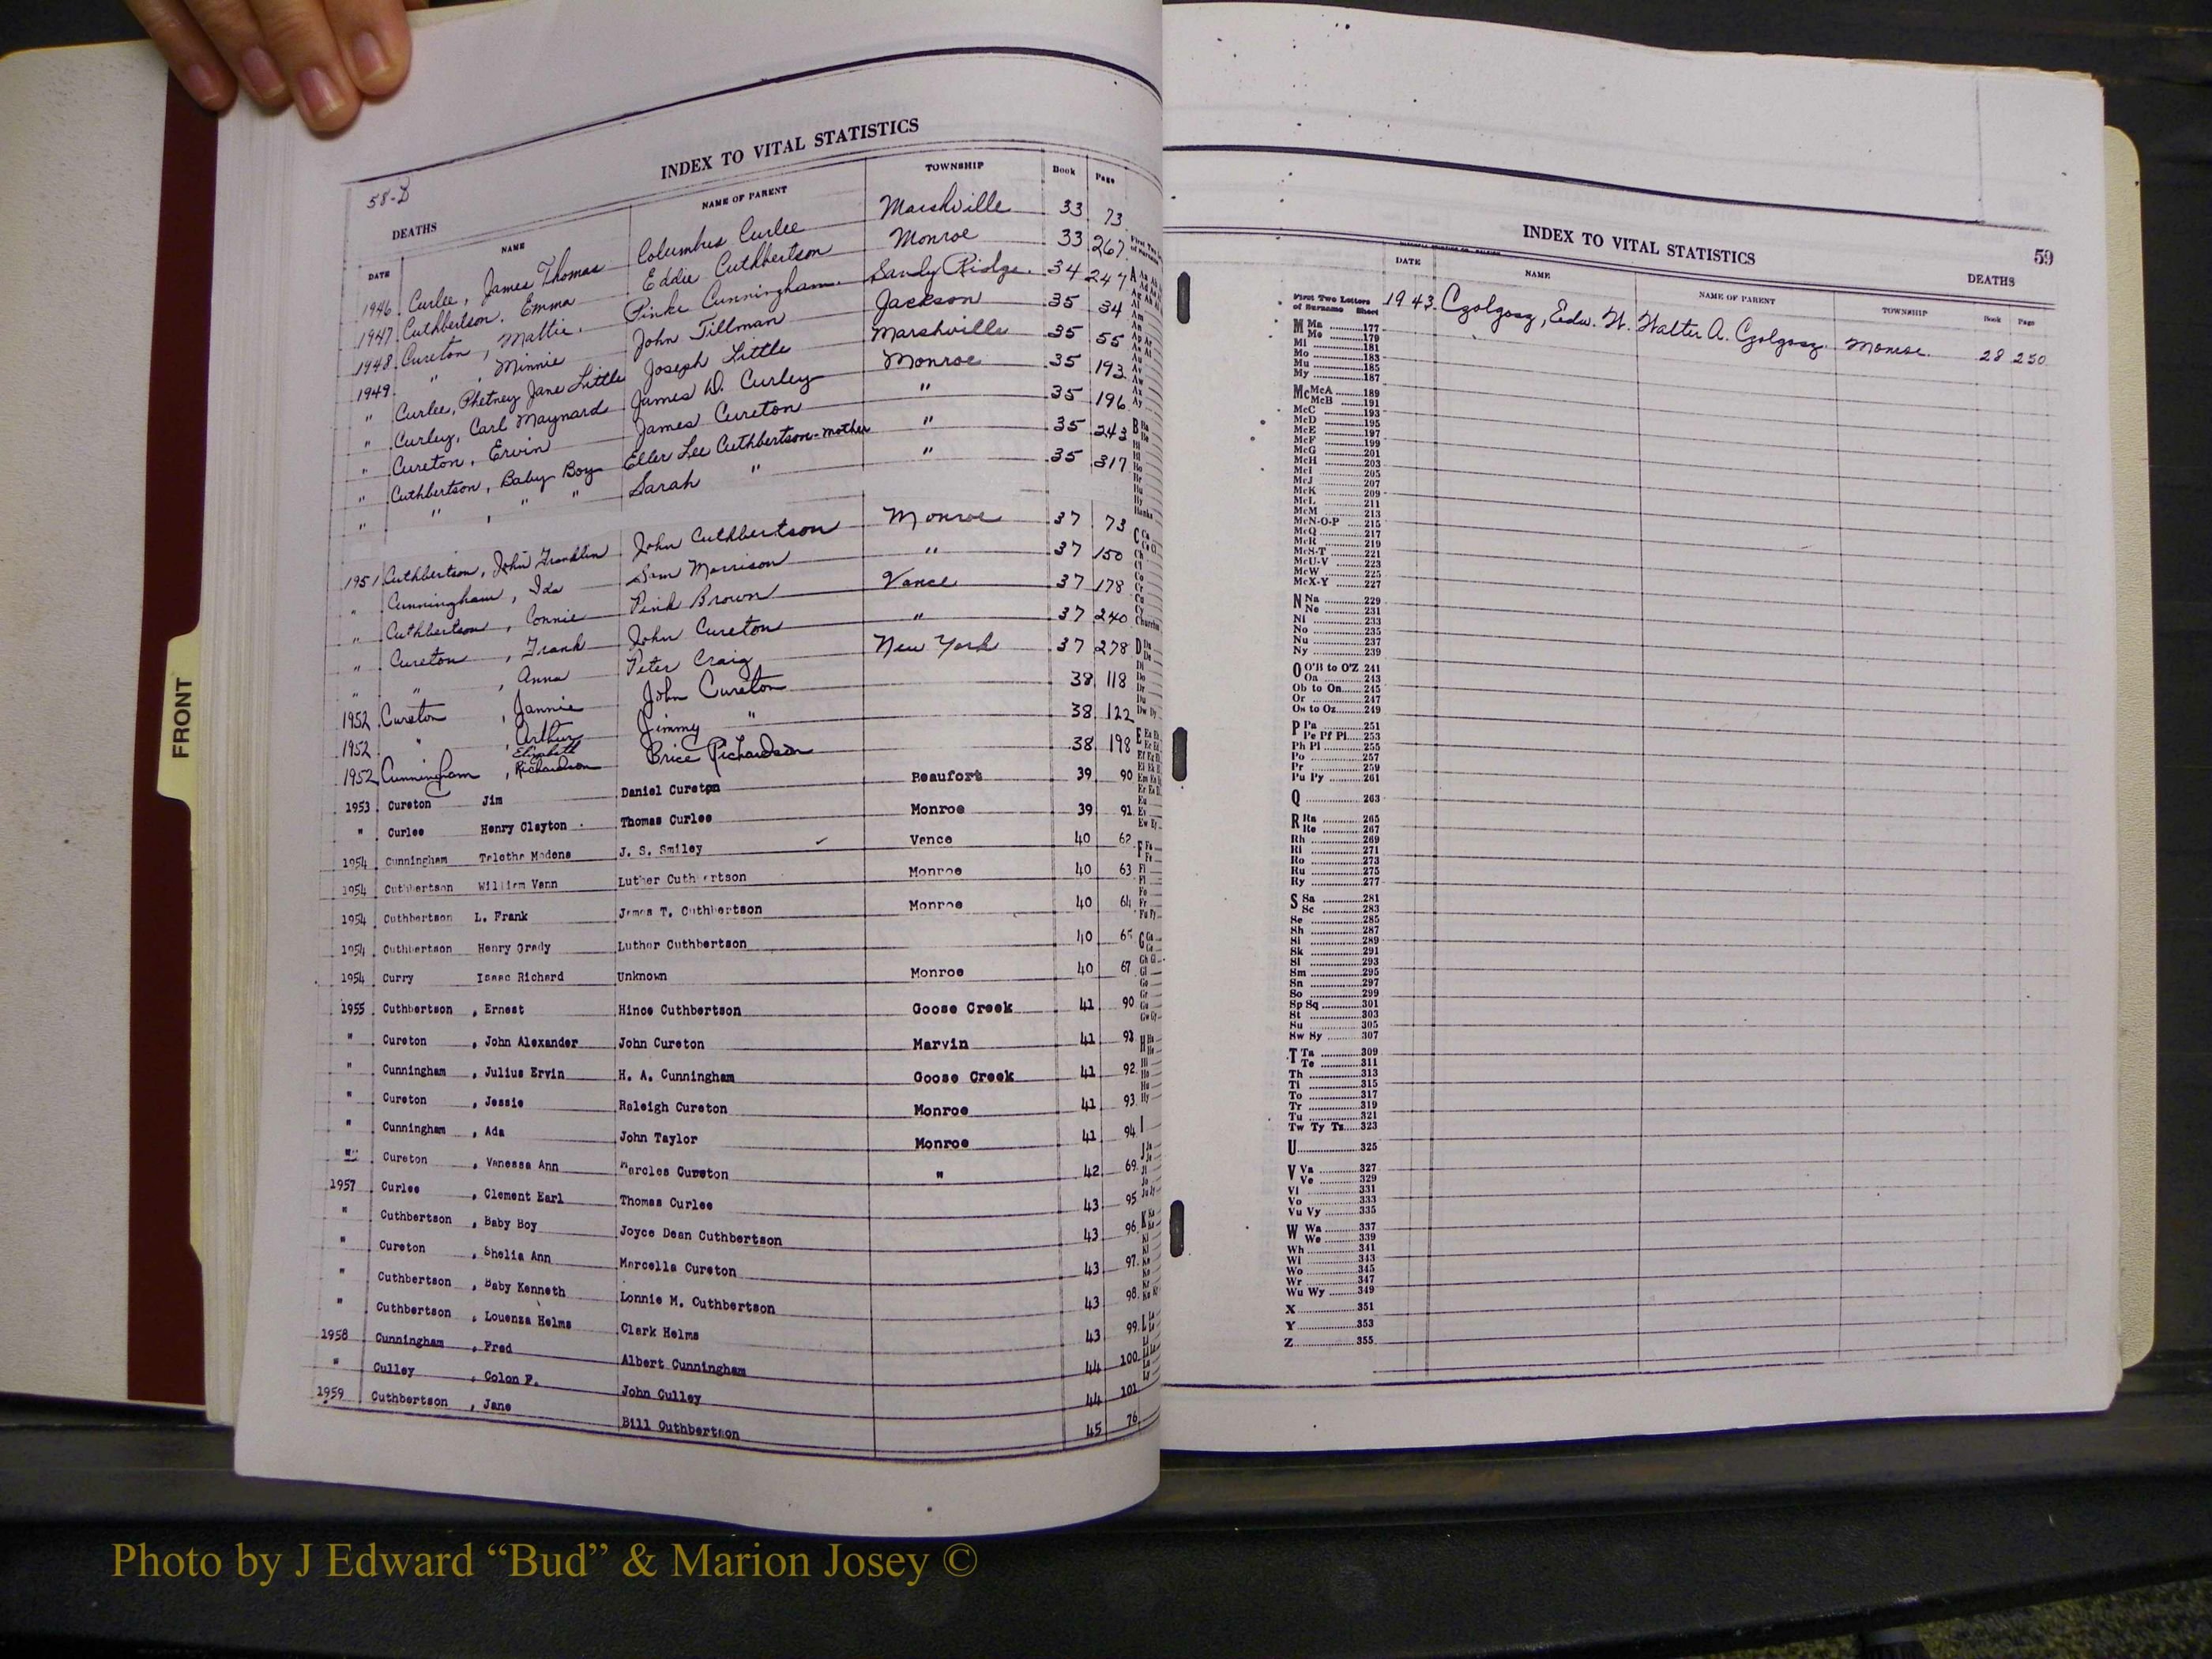 FRONT
INDEX TO VITAL STATISTICS
58-D
DEATHS
DATE NAME NAME OF PARENT TOWNSHIP Book Page
1946 Curlee, James Thomas Columbus Curlee Marshville 33 73
1947 Cuthbertson, Emma Eddie Cuthbertson Monroe 33 267
1948 Cureton, Mattie Pinke Cunningham Sandy Ridge 34 247
1949 " , Minnie John Tillman Jackson 35 34
" Curlee, Phetney Jane Little Joseph Little Marshville 35 55
" Curley, Carl Maynard James D. Curley Monroe 35 193
" Cureton, Ervin James Cureton " 35 196
" Cuthbertson, Baby Boy Eller Lee Cuthbertson-mother " 35 243
" " , " " Sarah " " 35 317
1951 Cuthbertson, John Franklin John Cuthbertson Monroe 37 73
" Cunningham, Ida Sam Morrison " 37 150
" Cuthbertson, Connie Pink Brown Vance 37 178
" Cureton, Frank John Cureton " 37 240
" " , Anna Peter Craig New York 37 278
1952 Cureton, Jannie John Cureton 38 118
1952 " , Arthur Jimmy " 38 122
1952 Cunningham, Elizabeth Richardson Brice Richardson 38 198
1953 Cureton Jim Daniel Cureton Beaufort 39 90
" Curlee Henry Clayton Thomas Curlee Monroe 39 91
1954 Cunningham Telotha Modena J. S. Smiley Vance 40 62
1954 Cuthbertson William Vann Luther Cuthbertson Monroe 40 63
1954 Cuthbertson L. Frank James T. Cuthbertson Monroe 40 64
1954 Cuthbertson Henry Grady Luther Cuthbertson 40 65
1954 Curry Isaac Richard Unknown Monroe 40 67
1955 Cuthbertson, Ernest Hince Cuthbertson Goose Creek 41 90
" Cureton, John Alexander John Cureton Marvin 41 92
" Cunningham, Julius Ervin H. A. Cunningham Goose Creek 41 92
" Cureton, Jessie Raleigh Cureton Monroe 41 93
" Cunningham, Ada John Taylor Monroe 41 94
" Cureton, Vanessa Ann Cureton " 42 69
1957 Curlee, Clement Earl Thomas Curlee 43 95
" Cuthbertson, Baby Boy Joyce Dean Cuthbertson 43 96
" Cureton, Shelia Ann Marcella Cureton 43 97
" Cuthbertson, Baby Kenneth Lonnie M. Cuthbertson 43 98
" Cuthbertson, Louenza Helms Clark Helms 43 99
1958 Cunningham, Fred Albert Cunningham 44 100
" Culley, Colon P. John Culley 44 101
1959 Cuthbertson, Jane Bill Cuthbertson 45 76
INDEX TO VITAL STATISTICS
59
DEATHS
DATE NAME NAME OF PARENT TOWNSHIP Book Page
1943 Czolgosz, Edw. W. Walter A. Czolgosz Monroe 28 250
First Two Letters
of Surname Sheet
M Ma 177
Me 179
Mi 181
Mo 183
Mu 185
My 187
Mc McA 189
McB 191
McC 193
McD 195
McE 197
McF 199
McG 201
McH 203
McI 205
McJ 207
McK 209
McL 211
McM 213
McN-O-P 215
McQ 217
McR 219
McS-T 221
McU-V 223
McW 225
McX-Y 227
N Na 229
Ne 231
Ni 233
No 235
Nu 237
Ny 239
O O'B to O'Z 241
Oa 243
Ob to On 245
Or 247
Os to Oz 249
P Pa 251
Pe Pf Pi 253
Ph Pl 255
Po 257
Pr 259
Pu Py 261
Q 263
R Ra 265
Re 267
Rh 269
Ri 271
Ro 273
Ru 275
Ry 277
S Sa 281
Sc 283
Se 285
Sh 287
Si 289
Sk 291
Sl 293
Sm 295
Sn 297
So 299
Sp Sq 301
St 303
Su 305
Sw Sy 307
T Ta 309
Te 311
Th 313
Ti 315
To 317
Tr 319
Tu 321
Tw Ty Tz 323
U 325
V Va 327
Ve 329
Vi 331
Vo 333
Vu Vy 335
W Wa 337
We 339
Wh 341
Wi 343
Wo 345
Wr 347
Wu Wy 349
X 351
Y 353
Z 355
Photo by J Edward “Bud” & Marion Josey ©